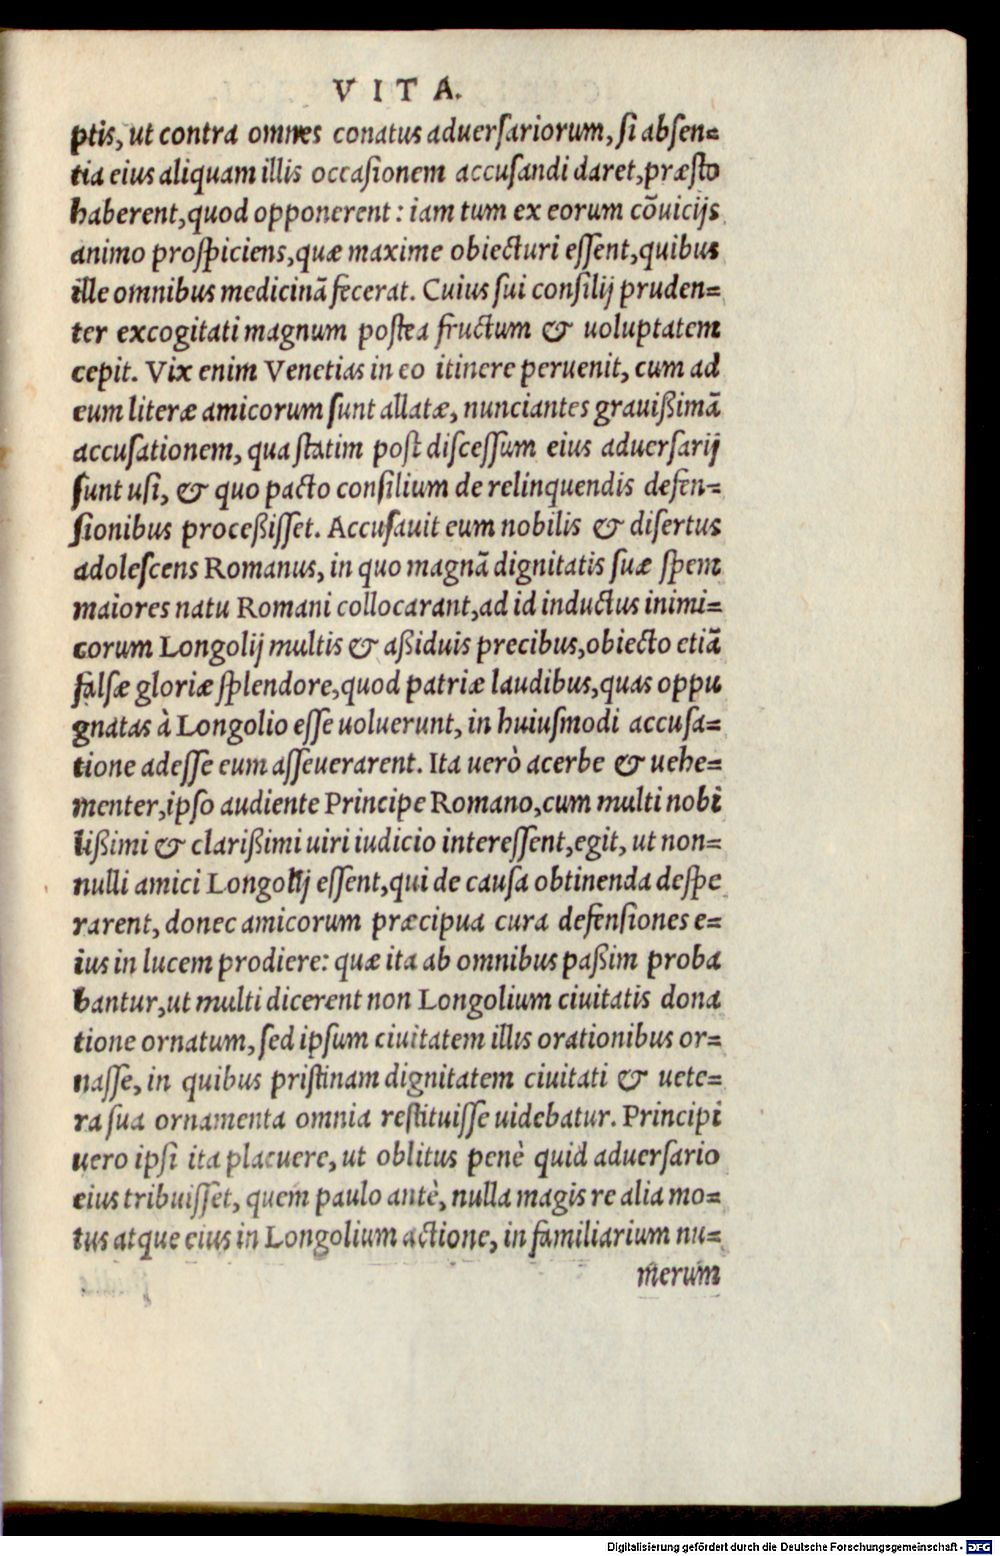 VITA.
ptis, ut contra omnes conatus aduersariorum, si absen=
tia eius aliquam illis occasionem accusandi daret, præsto
haberent, quod opponerent: iam tum ex eorum cõuicijs
animo prospiciens, quæ maxime obiecturi essent, quibus
ille omnibus medicinã fecerat. Cuius sui consilij pruden=
ter excogitati magnum postea fructum & uoluptatem
cepit. Vix enim Venetias in eo itinere peruenit, cum ad
eum literæ amicorum sunt allatæ, nunciantes grauißimã
accusationem, qua statim post discessum eius aduersarij
sunt usi, & quo pacto consilium de relinquendis defen=
sionibus proceßisset. Accusauit eum nobilis & disertus
adolescens Romanus, in quo magnã dignitatis suæ spem
maiores natu Romani collocarant, ad id inductus inimi=
corum Longolij multis & aßiduis precibus, obiecto etiã
falsæ gloriæ splendore, quod patriæ laudibus, quas oppu
gnatas à Longolio esse uoluerunt, in huiusmodi accusa=
tione adesse eum asseuerarent. Ita uerò acerbe & uehe=
menter, ipso audiente Principe Romano, cum multi nobi
lißimi & clarißimi uiri iudicio interessent, egit, ut non=
nulli amici Longolij essent, qui de causa obtinenda despe
rarent, donec amicorum præcipua cura defensiones e=
ius in lucem prodiere: quæ ita ab omnibus paßim proba
bantur, ut multi dicerent non Longolium ciuitatis dona
tione ornatum, sed ipsum ciuitatem illis orationibus or=
nasse, in quibus pristinam dignitatem ciuitati & uete=
ra sua ornamenta omnia restituisse uidebatur. Principi
uero ipsi ita placuere, ut oblitus penè quid aduersario
eius tribuisset, quem paulo antè, nulla magis re alia mo=
tus atque eius in Longolium actione, in familiarium nu=
merum
Digitalisierung gefördert durch die Deutsche Forschungsgemeinschaft - DFG